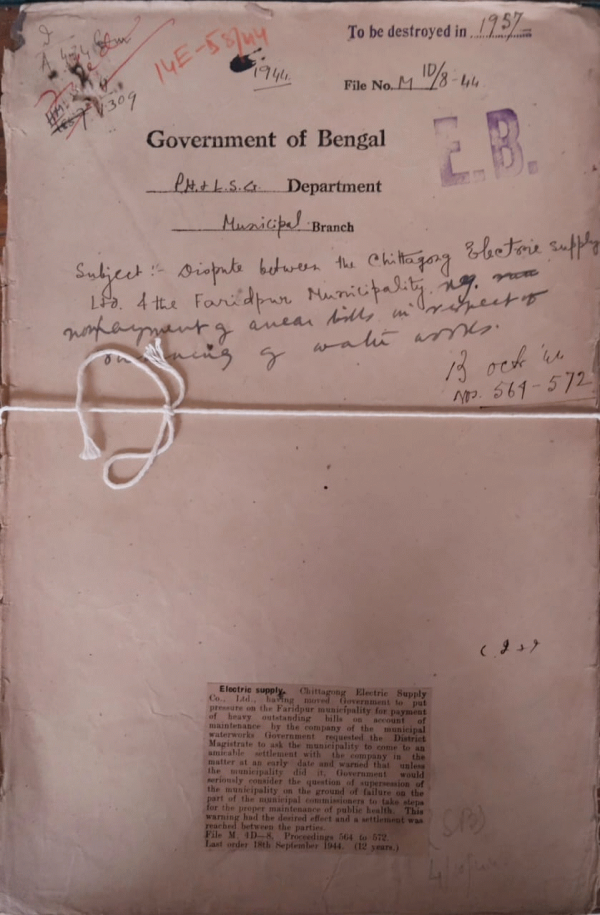 To be destroyed in 1957
14E-53/44
1944
File No. M 1D/8-44
1309
Government of Bengal
E.B.
P.H. & L.S.G. Department
Municipal Branch
Subject :- Dispute between the Chittagong Electric Supply
Ltd. & the Faridpur Municipality reg.
nonpayment of arrear bills in respect of
of water works.
B Octr '44
Nos. 564-572
Electric supply. Chittagong Electric Supply
Co., Ltd., having moved Government to put
pressure on the Faridpur municipality for payment
of heavy outstanding bills on account of
maintenance by the company of the municipal
waterworks Government requested the District
Magistrate to ask the municipality to come to an
amicable settlement with the company in the
matter at an early date and warned that unless
the municipality did it, Government would
seriously consider the question of supersession of
the municipality on the ground of failure on the
part of the municipal commissioners to take steps
for the proper maintenance of public health. This
warning had the desired effect and a settlement was
reached between the parties.
File M. 1D—8, Proceedings 564 to 572.
Last order 18th September 1944. (12 years.)